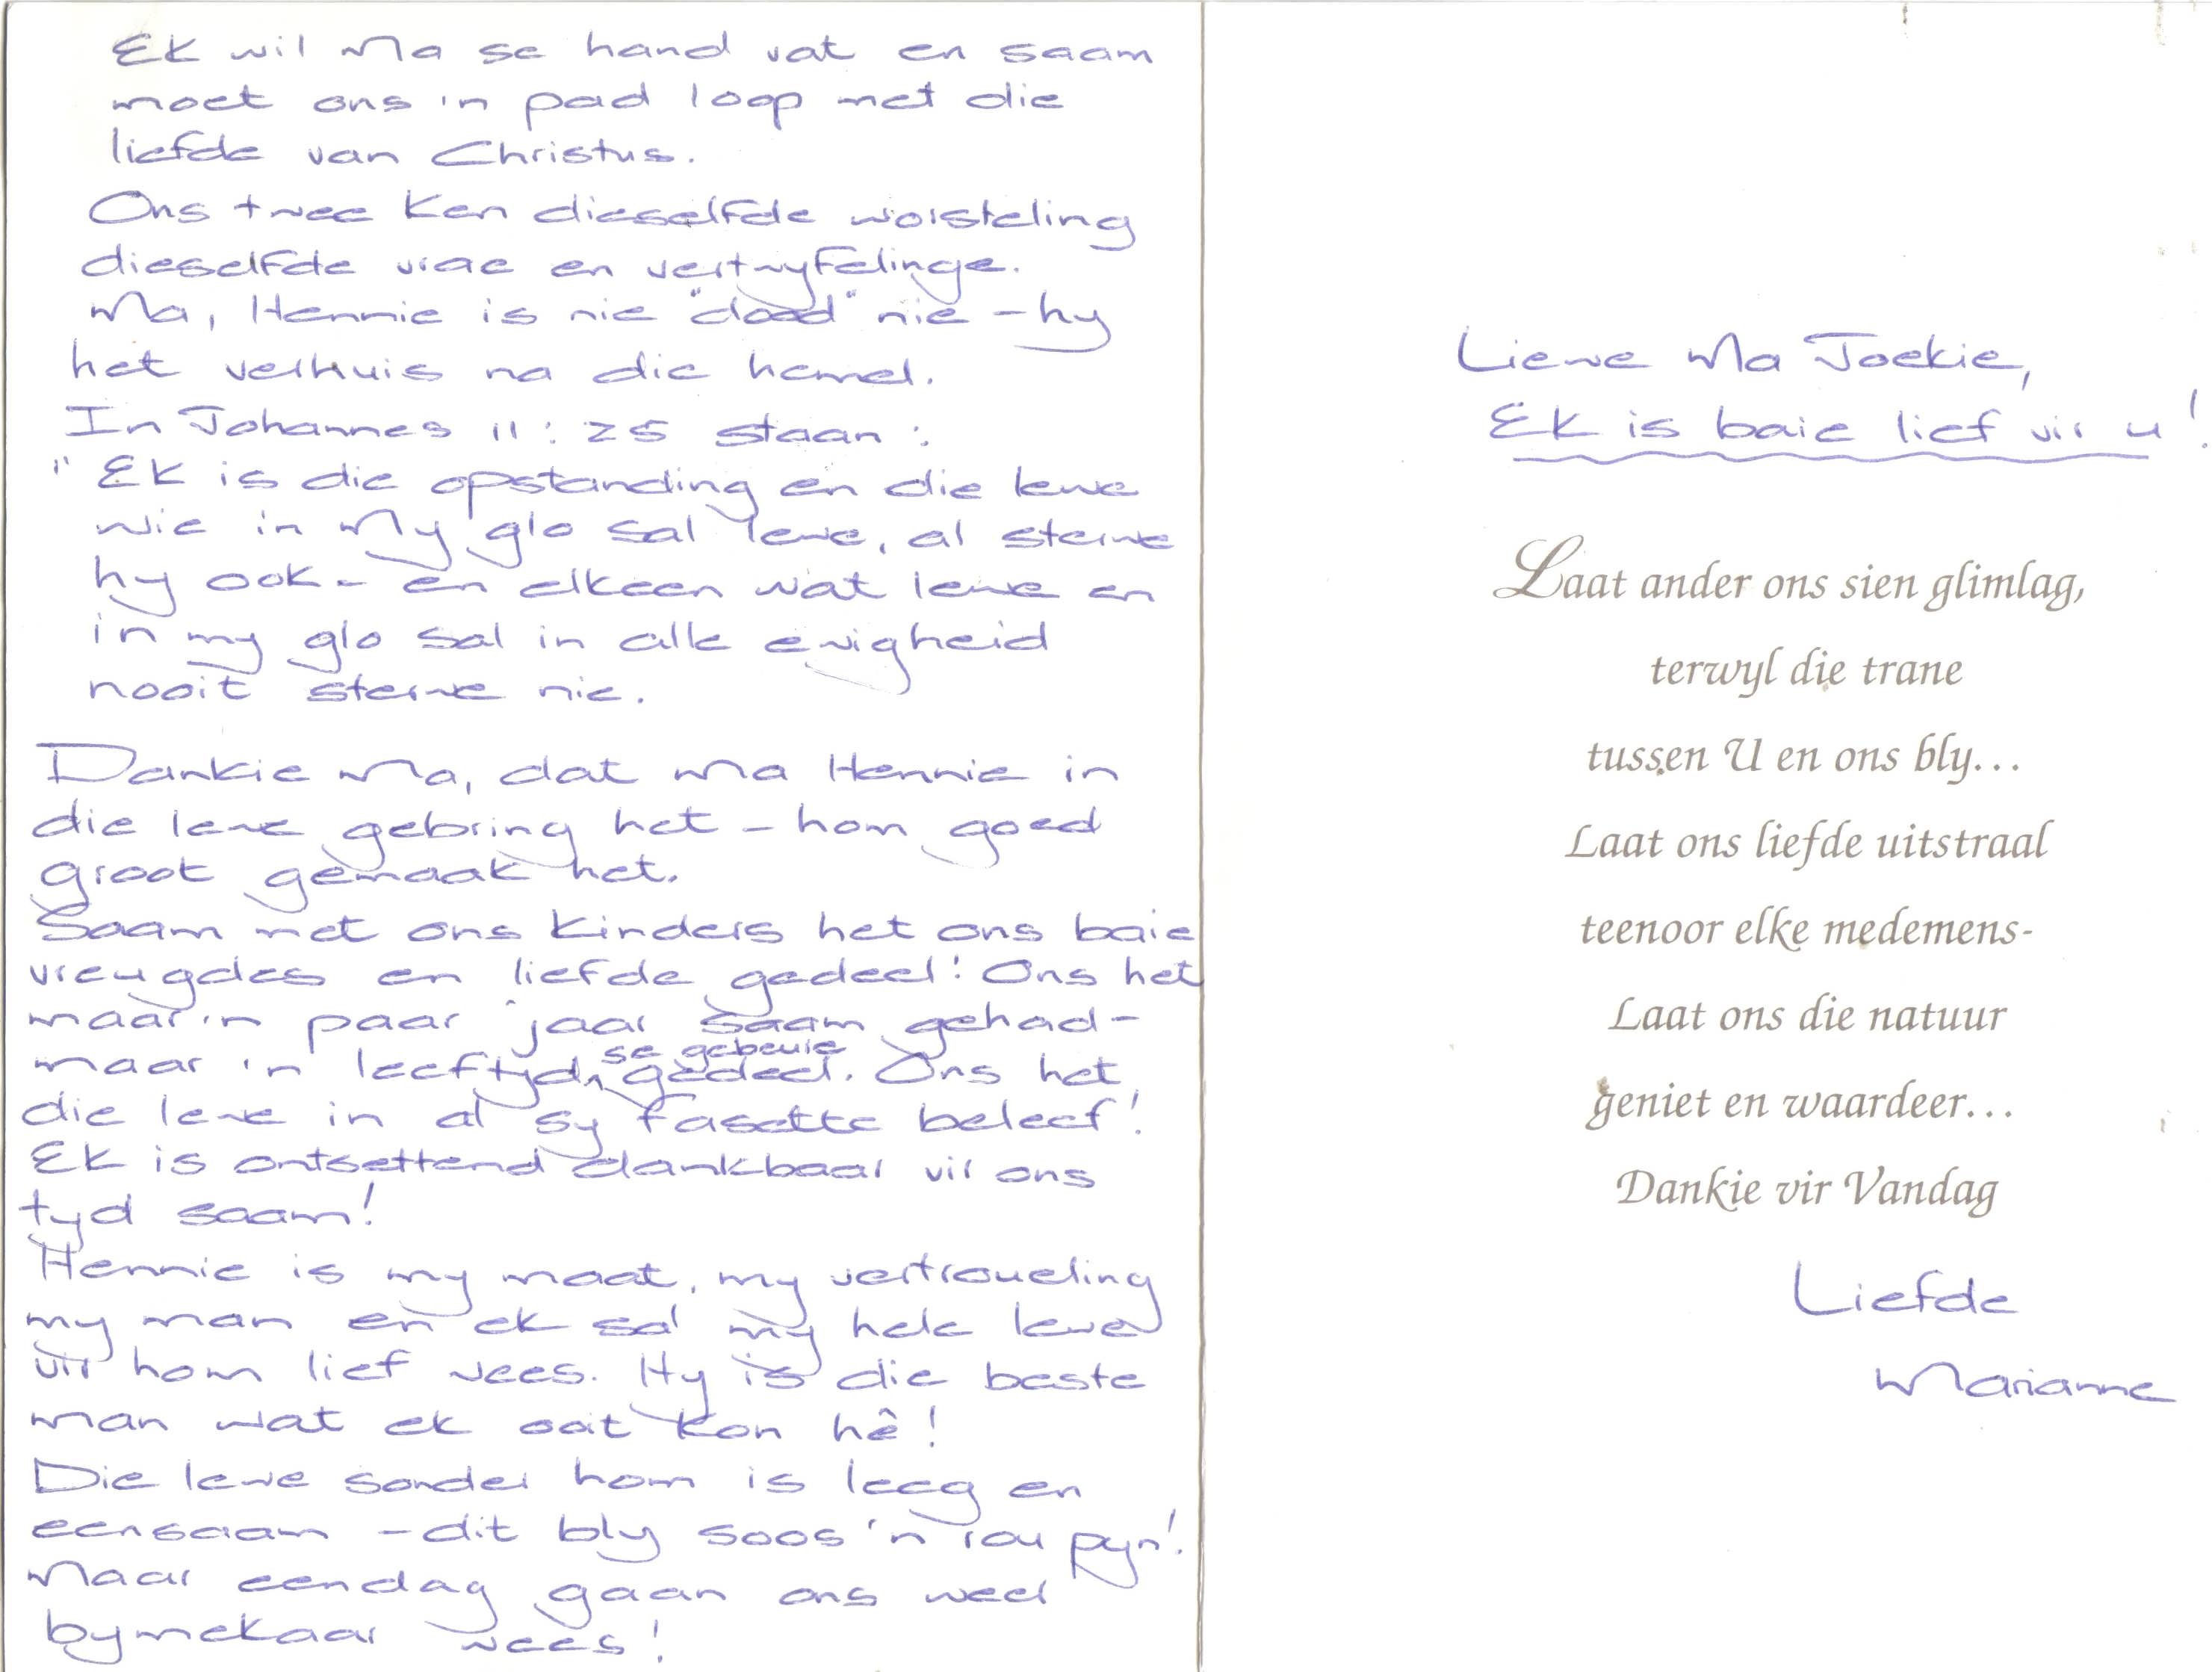 Ek wil Ma se hand vat en saam
moet ons 'n pad loop met die
liefde van Christus.
Ons twee ken dieselfde worsteling
dieselfde vrae en vertwyfelinge.
Ma, Hennie is nie "dood" nie - hy
het verhuis na die hemel.
In Johannes 11:25 staan:
"Ek is die opstanding en die lewe
wie in My glo sal lewe, al sterwe
hy ook - en elkeen wat lewe en
in my glo sal in alle ewigheid
nooit sterwe nie.
Dankie Ma, dat Ma Hennie in
die lewe gebring het - hom goed
groot gemaak het.
Saam met ons kinders het ons baie
vreugdes en liefde gedeel! Ons het
maar 'n paar jaar saam gehad -
maar 'n leeftyd se gebeure gedeel. Ons het
die lewe in al sy fasette beleef!
Ek is ontsettend dankbaar vir ons
tyd saam!
Hennie is my maat, my vertroueling
my man en ek sal my hele lewe
vir hom lief wees. Hy is die beste
man wat ek ooit kon hê!
Die lewe sonder hom is leeg en
eensaam - dit bly soos 'n rou pyn!
Maar eendag gaan ons weer
bymekaar wees!
Liewe Ma Joekie,
Ek is baie lief vir u!
Laat ander ons sien glimlag,
terwyl die trane
tussen U en ons bly...
Laat ons liefde uitstraal
teenoor elke medemens-
Laat ons die natuur
geniet en waardeer...
Dankie vir Vandag
Liefde
Marianne